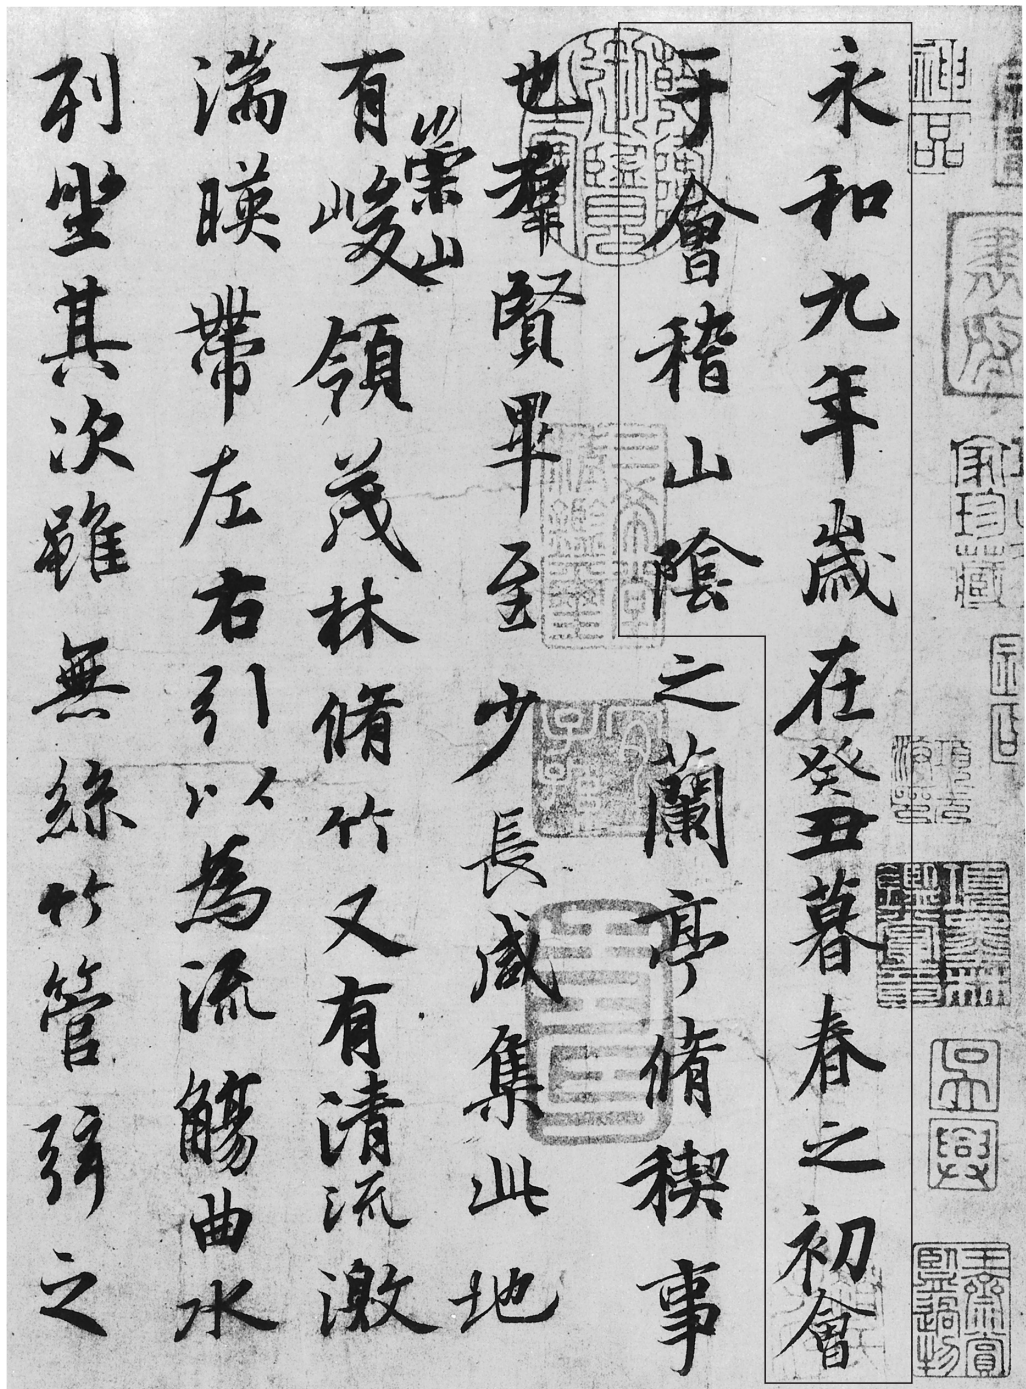 永和九年歲在癸丑暮春之初會
于會稽山陰之蘭亭脩稧事
也羣賢畢至少長咸集此地
有崇山峻領茂林脩竹又有清流激
湍暎帶左右引以為流觴曲水
列坐其次雖無絲竹管弦之
神品
家珍藏
吳興